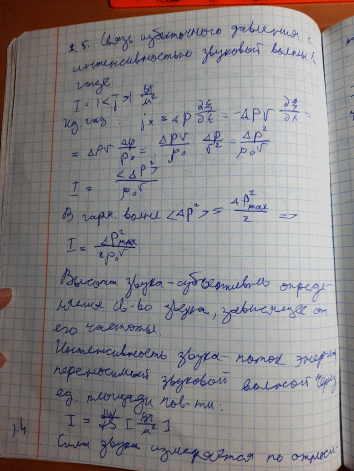 1.5. Связь избыточного давления с
интенсивностью звуковой волны в
газе
I = |<j>| Вт/м²
Ид. газ: jx = ΔP ∂ξ/∂t = -ΔPv ∂ξ/∂x =
= ΔPv Δρ/ρ₀ = ΔPv/ρ₀ ΔP/v² = ΔP²/ρ₀v
I = <ΔP²>/ρ₀v
В гарм. волне <ΔP²> = ΔP²max/2 =>
I = ΔP²max/2ρ₀v
Высота звука - субъективно опреде-
ляемое св-во звука, зависящее от
его частоты.
Интенсивность звука - поток энергии
переносимый звуковой волной через
ед. площади пов-ти:
I = [Вт/м²]
Сила звука измеряется по относи-